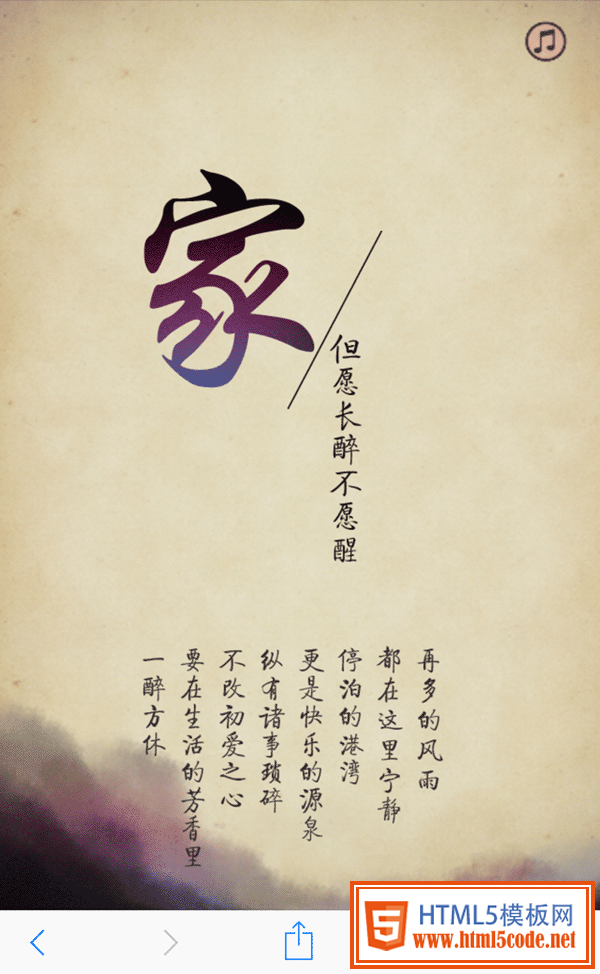 家
但愿长醉不愿醒
再多的风雨
都在这里宁静
停泊的港湾
更是快乐的源泉
纵有诸事琐碎
不改初爱之心
要在生活的芳香里
一醉方休
HTML5模板网
www.html5code.net